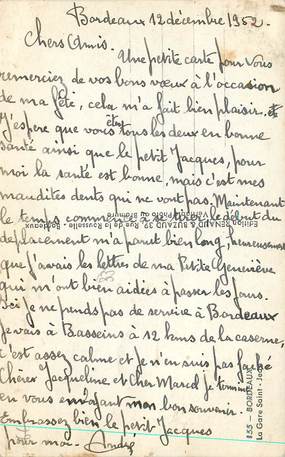 Bordeaux 12 décembre 1952.
Chers Amis.
Une petite carte pour vous
remercier de vos bons vœux à l'occasion
de ma fête, cela m'a fait bien plaisir, et
J'espère que vous êtes tous les deux en bonne
santé ainsi que le petit Jacques, pour
moi la santé est bonne, mais c'est mes
maudites dents qui ne vont pas. Maintenant
le temps commence à tirer, le début du
déplacement m'a paru bien long, heureusement
que j'avais les lettres de ma Petite Geneviève
qui m'ont bien aidées à passer les jours.
Ici je ne prends pas de service à Bordeaux
je vais à Basseins à 12 kms de la caserne,
c'est assez calme et je n'en suis pas faché
Chère Jacqueline et Cher Marcel je termine
en vous envoyant mon bon souvenir.
Embrassez bien le petit Jacques
pour moi. André
Edition RENAUD & BUZAUD, 39, Rue de la Rousselle - Bordeaux
Véritable Photo au Bromure
155 - BORDEAUX
La Gare Saint-Jean